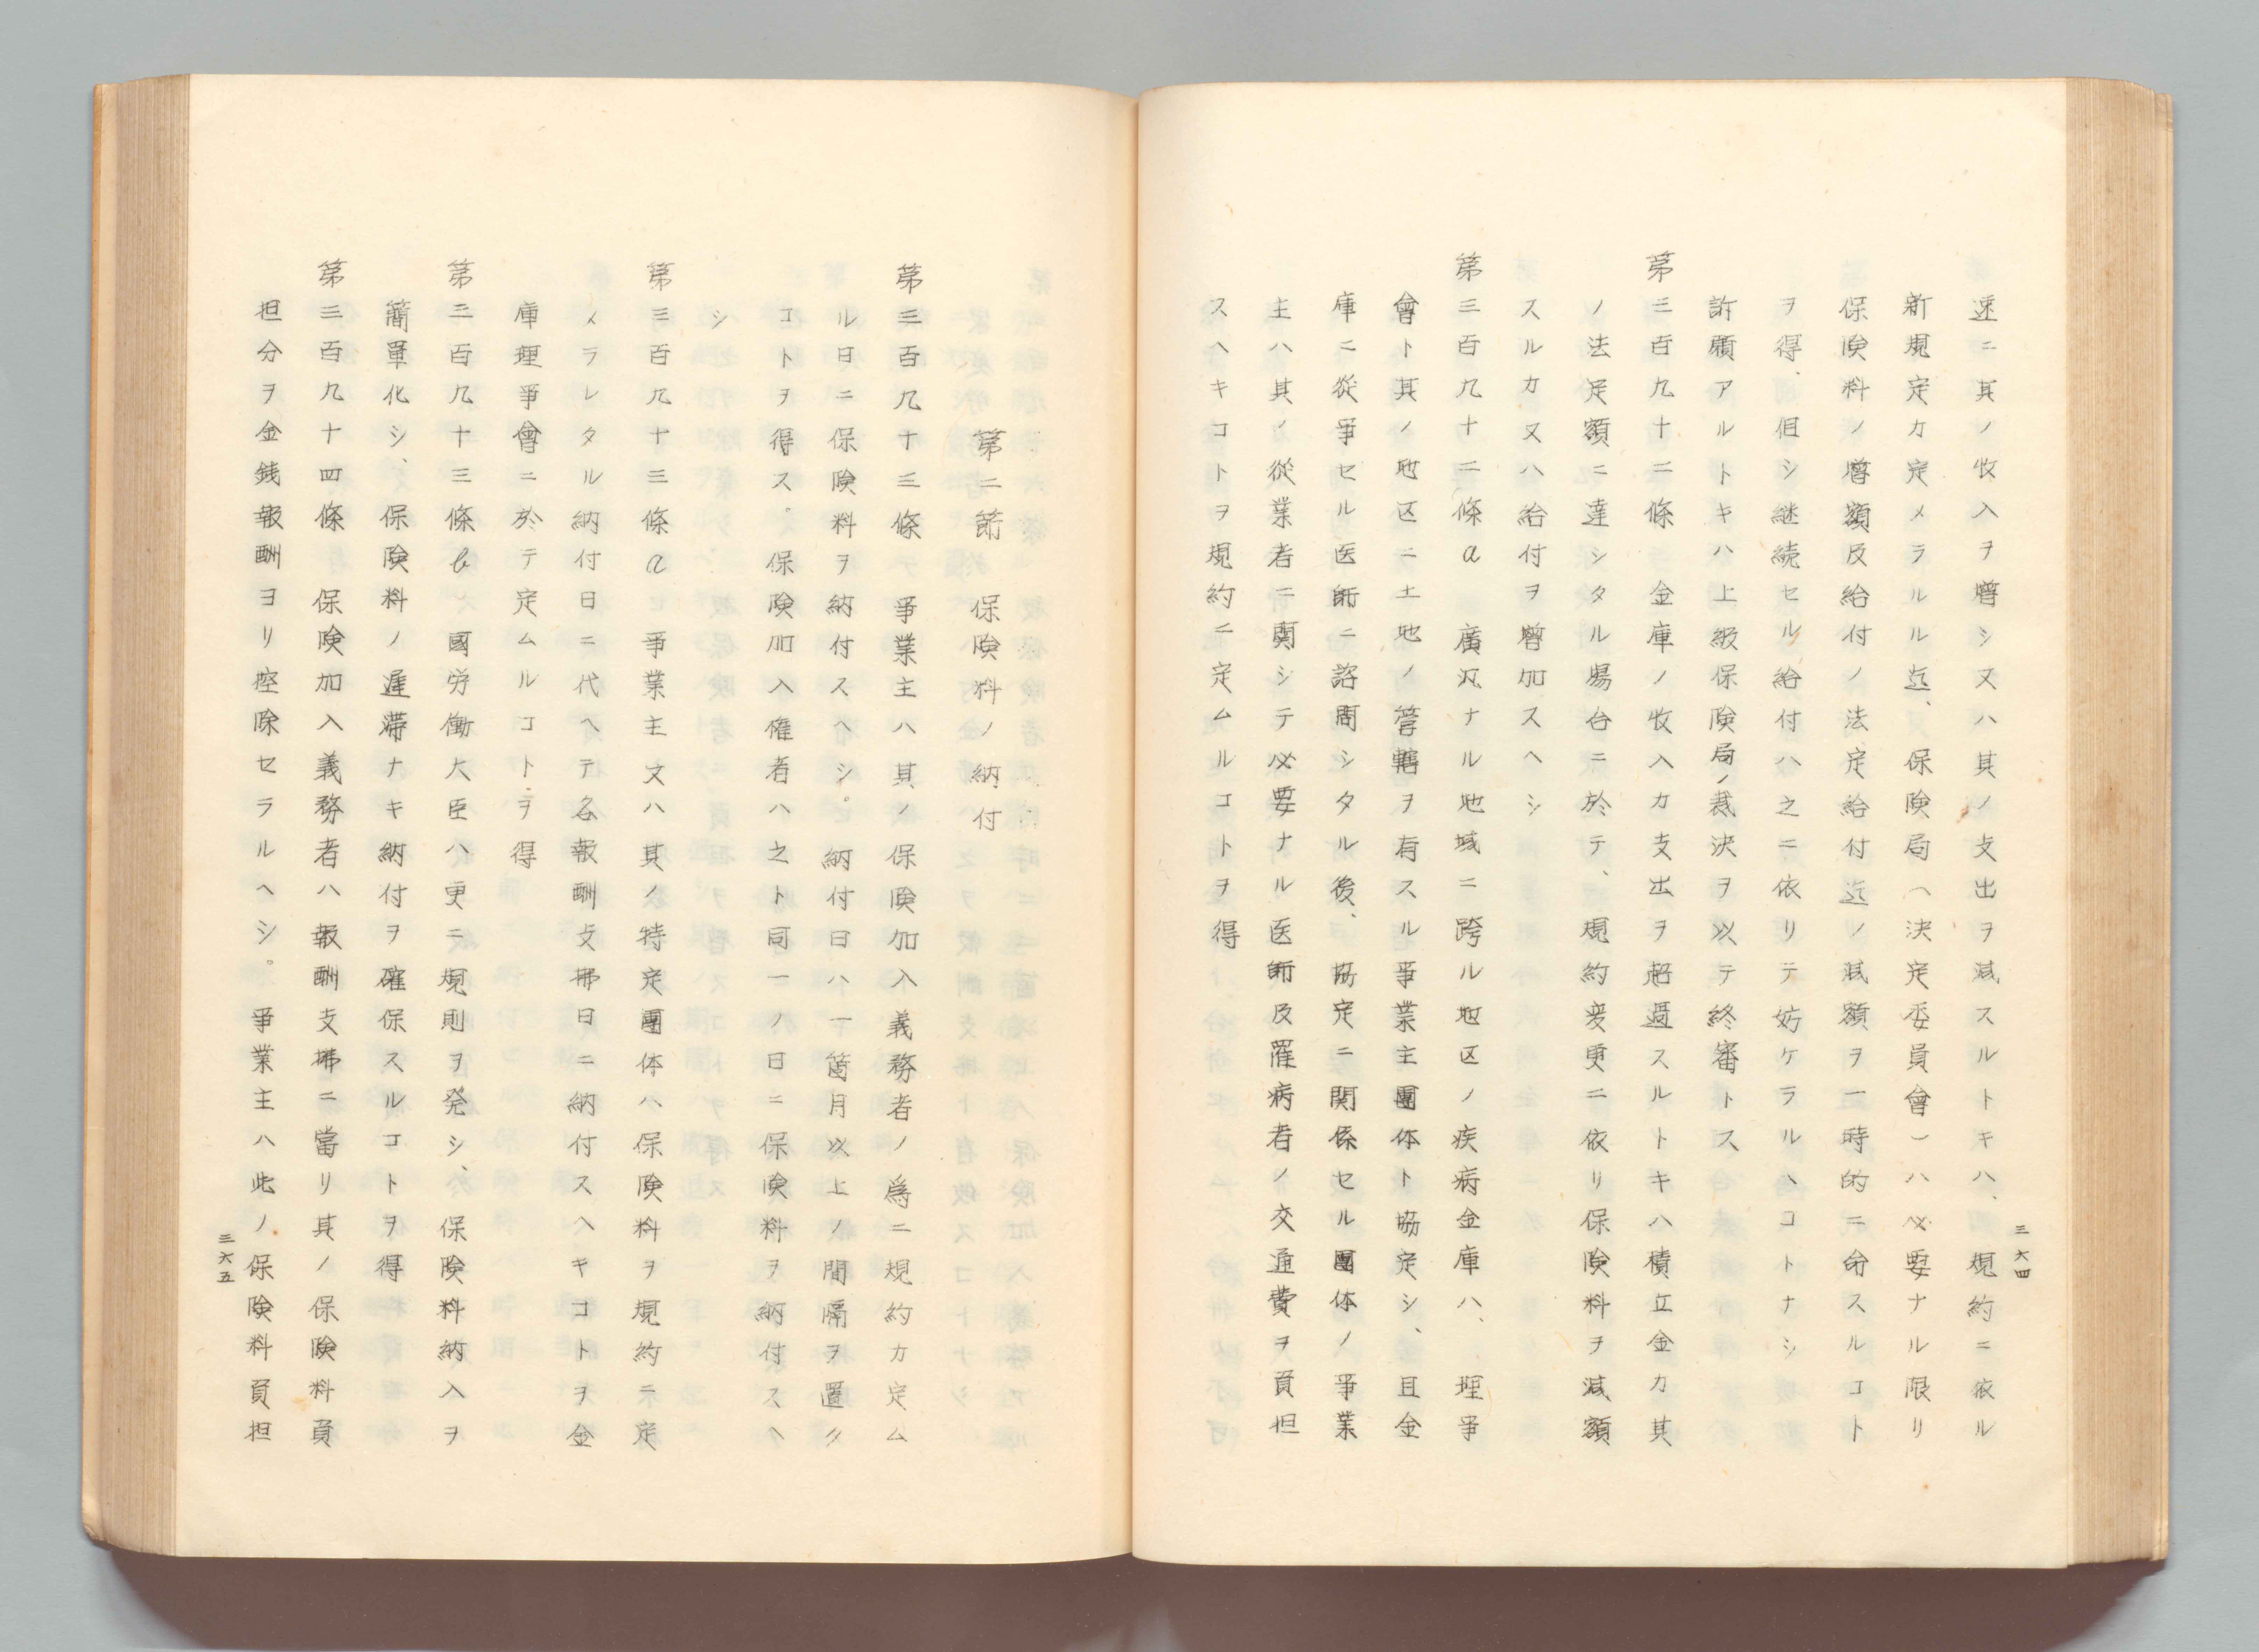 速ニ其ノ收入ヲ増シ又ハ其ノ支出ヲ减スルトキハ、規約ニ依ル
新規定カ定メラルル迄、保険局（決定委員會）ハ必要ナル限リ
保険料ノ増額及給付ノ法定給付迄ノ减額ヲ一時的ニ命スルコト
ヲ得、但シ継続セル給付ハ之ニ依リテ妨ケラルヽコトナシ
訴願アルトキハ上級保険局ノ裁決ヲ以テ終審トス
第三百九十二條　金庫ノ收入カ支出ヲ超過スルトキハ積立金カ其
ノ法定額ニ達シタル場合ニ於テ、規約変更ニ依リ保険料ヲ减額
スルカ又ハ給付ヲ増加スヘシ
第三百九十二條a　廣汎ナル地域ニ跨ル地区ノ疾病金庫ハ、理事
會ト其ノ地区ニ土地ノ管轄ヲ有スル事業主團体ト協定シ、且金
庫ニ従事セル医師ニ諮問シタル後、協定ニ関係セル團体ノ事業
主ハ其ノ従業者ニ関シテ必要ナル医師及罹病者ノ交通費ヲ負担
スヘキコトヲ規約ニ定ムルコトヲ得
三六四
第二節　保険料ノ納付
第三百九十三條　事業主ハ其ノ保険加入義務者ノ為ニ規約カ定ム
ル日ニ保険料ヲ納付スヘシ。納付日ハ一箇月以上ノ間隔ヲ置ク
コトヲ得ス。保険加入権者ハ之ト同一ノ日ニ保険料ヲ納付スヘ
シ
第三百九十三條a　事業主又ハ其ノ特定團体ハ保険料ヲ規約ニ定
メラレタル納付日ニ代ヘテ各報酬支拂日ニ納付スヘキコトヲ金
庫理事會ニ於テ定ムルコトヲ得
第三百九十三條b　國労働大臣ハ更ニ規則ヲ発シ、保険料納入ヲ
簡單化シ、保険料ノ遅滞ナキ納付ヲ確保スルコトヲ得
第三百九十四條　保険加入義務者ハ報酬支拂ニ當リ其ノ保険料負
担分ヲ金銭報酬ヨリ控除セラルヘシ。事業主ハ此ノ保険料負担
三六五